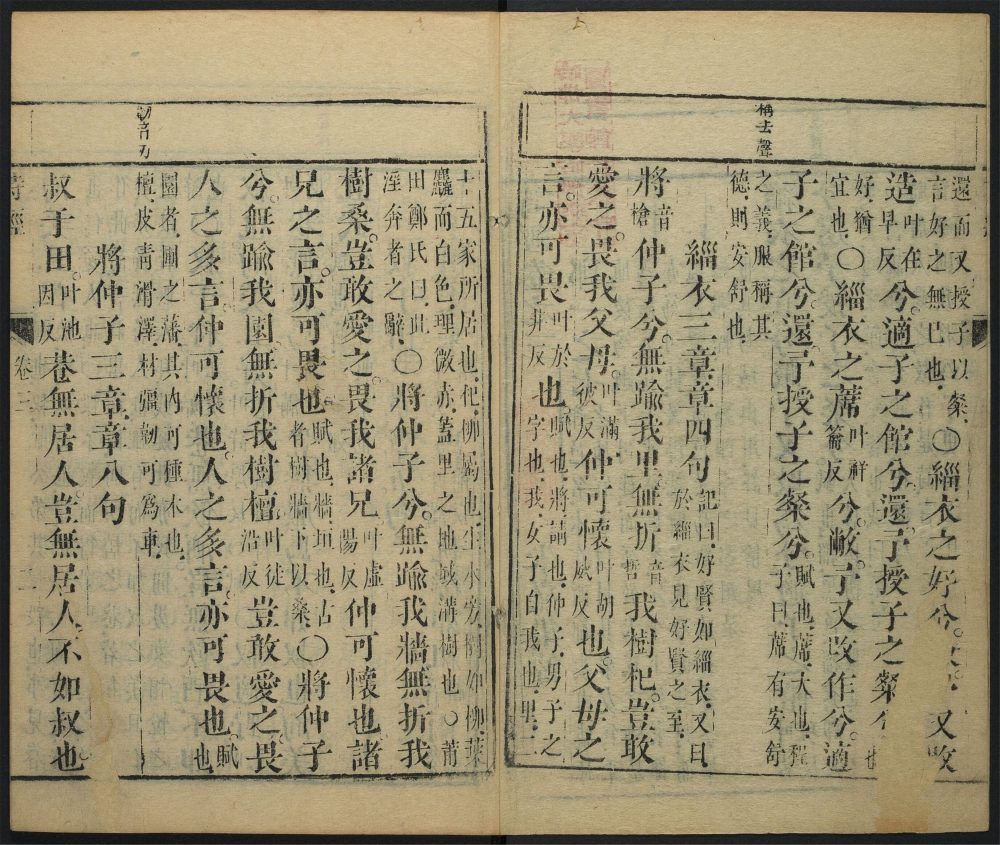 稱去聲
還而又授子以粲
言好之無已也〇緇衣之好兮 又改
造叶在早反兮適子之館兮還予授子之粲
好猶宜也〇緇衣之蓆叶祥籥反兮敝予又改作兮適
子之館兮還予授子之粲兮賦也蓆大也程子曰蓆有安舒
之義服稱其德則安舒也
緇衣三章章四句記曰好賢如緇衣又曰於緇衣見好賢之至
將音槍仲子兮無踰我里無折音哲我樹杞豈敢
愛之畏我父母叶滿彼反仲可懷叶胡威反也父母之
言亦可畏叶於非反也賦也將請也仲子男子之字也我女子自我也里二
十五家所居也杞柳屬也生水旁樹如柳葉
麤而白色理微赤蓋里之地域溝樹也〇莆
田鄭氏曰此淫奔者之辭〇將仲子兮無踰我牆無折我
樹桑豈敢愛之畏我諸兄叶虛陽反仲可懷也諸
兄之言亦可畏也賦也牆垣也古者樹牆下以桑〇將仲子
兮無踰我園無折我樹檀叶徒沿反豈敢愛之畏
人之多言仲可懷也人之多言亦可畏也賦也
園者圃之藩其內可種木也
檀皮青滑澤材彊韌可為車
將仲子三章章八句
叔于田叶池因反巷無居人豈無居人不如叔也
詩經
卷三